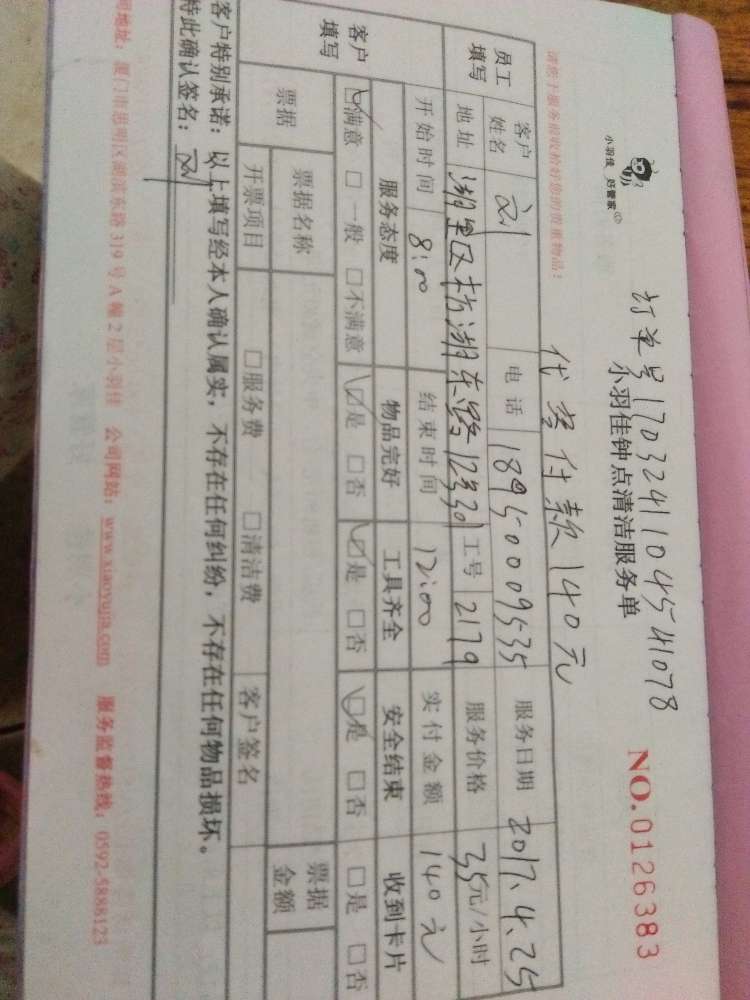 订单号1703241104541078
小羽佳 好管家
小羽佳钟点清洁服务单
NO.0126383
请您于服务前收拾好您的贵重物品:
代客付款140元
员工填写
客户姓名 刘 电话 18950009535 服务日期 2017.4.25
地址 湖里区枋湖东路12号301 工号 2179 服务价格 35元/小时
开始时间 8:00 结束时间 12:00 实付金额 140元
客户填写
服务态度 物品完好 工具齐全 安全结束 收到卡片
☑满意 □一般 □不满意 ☑是 □否 ☑是 □否 ☑是 □否 □是 □否
票据 票据名称 票据金额
开票项目 □服务费 □清洁费 客户签名
客户特别承诺:以上填写经本人确认属实,不存在任何纠纷,不存在任何物品损坏。
特此确认签名:刘
司地址:厦门市思明区湖滨东路319号A幢2层小羽佳 公司网站:www.xiaoyujia.com 服务监督热线:0592-5888123